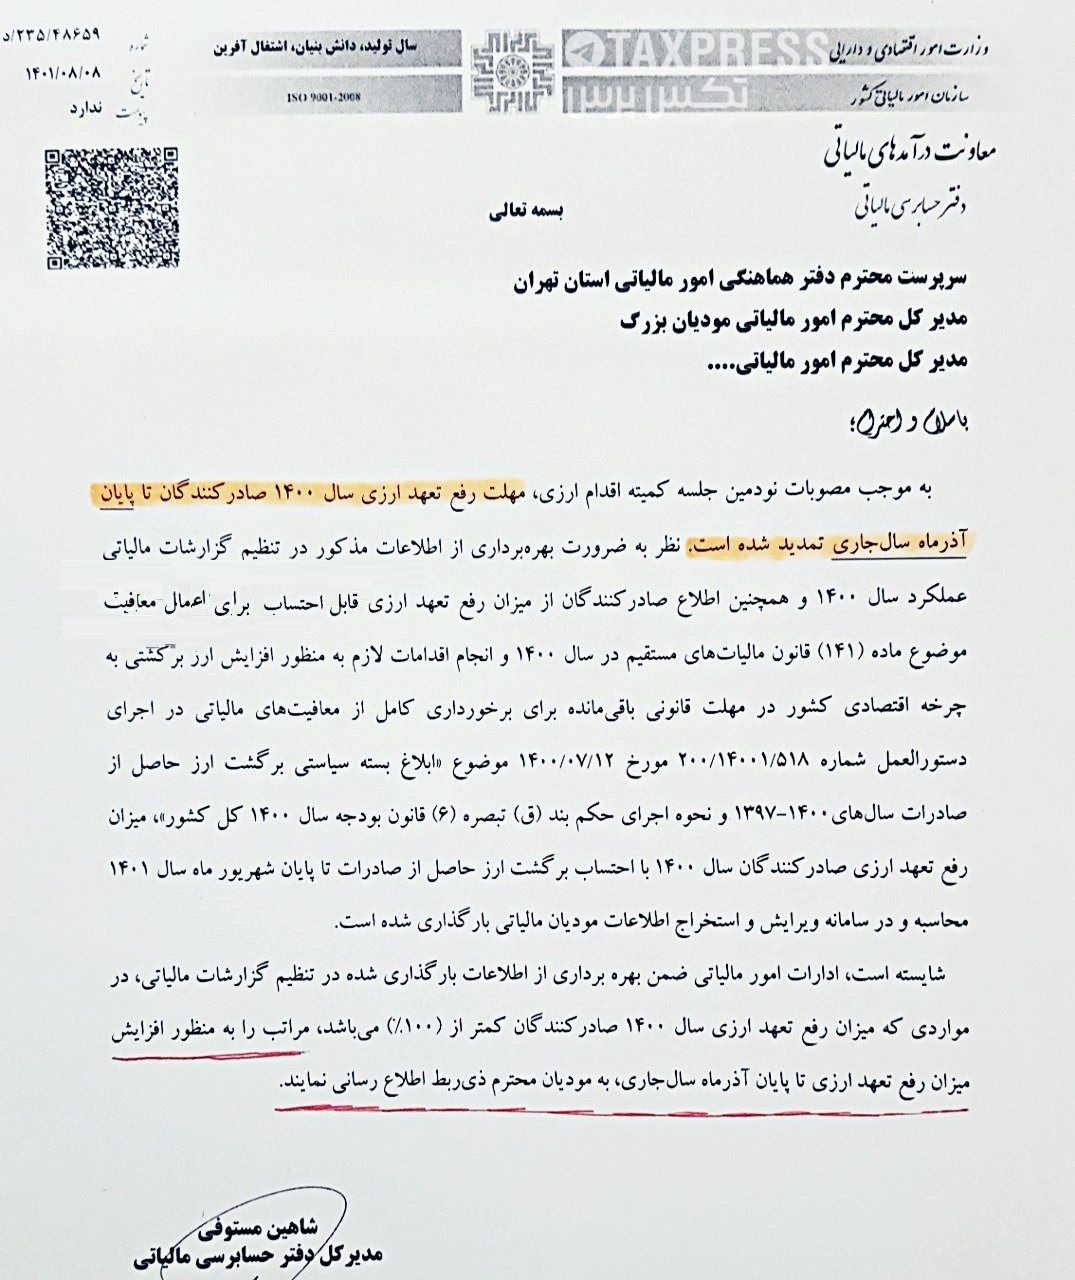 وزارت امور اقتصادی و دارایی
سازمان امور مالیاتی کشور
TAXPRESS
تکس پرس
سال تولید، دانش بنیان، اشتغال آفرین
ISO 9001-2008
شماره ۲۳۵/۴۸۶۵۹/د
تاریخ ۱۴۰۱/۰۸/۰۸
پیوست ندارد
معاونت درآمدهای مالیاتی
دفتر حسابرسی مالیاتی
بسمه تعالی
سرپرست محترم دفتر هماهنگی امور مالیاتی استان تهران
مدیر کل محترم امور مالیاتی مودیان بزرگ
مدیر کل محترم امور مالیاتی....
باسلام و احترام؛
به موجب مصوبات نودمین جلسه کمیته اقدام ارزی، مهلت رفع تعهد ارزی سال ۱۴۰۰ صادرکنندگان تا پایان
آذرماه سال‌جاری تمدید شده است. نظر به ضرورت بهره‌برداری از اطلاعات مذکور در تنظیم گزارشات مالیاتی
عملکرد سال ۱۴۰۰ و همچنین اطلاع صادرکنندگان از میزان رفع تعهد ارزی قابل احتساب برای اعمال معافیت
موضوع ماده (۱۴۱) قانون مالیات‌های مستقیم در سال ۱۴۰۰ و انجام اقدامات لازم به منظور افزایش ارز برگشتی به
چرخه اقتصادی کشور در مهلت قانونی باقی‌مانده برای برخورداری کامل از معافیت‌های مالیاتی در اجرای
دستورالعمل شماره ۲۰۰/۱۴۰۰۱/۵۱۸ مورخ ۱۴۰۰/۰۷/۱۲ موضوع «ابلاغ بسته سیاستی برگشت ارز حاصل از
صادرات سال‌های ۱۴۰۰-۱۳۹۷ و نحوه اجرای حکم بند (ق) تبصره (۶) قانون بودجه سال ۱۴۰۰ کل کشور»، میزان
رفع تعهد ارزی صادرکنندگان سال ۱۴۰۰ با احتساب برگشت ارز حاصل از صادرات تا پایان شهریور ماه سال ۱۴۰۱
محاسبه و در سامانه ویرایش و استخراج اطلاعات مودیان مالیاتی بارگذاری شده است.
شایسته است، ادارات امور مالیاتی ضمن بهره برداری از اطلاعات بارگذاری شده در تنظیم گزارشات مالیاتی، در
مواردی که میزان رفع تعهد ارزی سال ۱۴۰۰ صادرکنندگان کمتر از (۱۰۰٪) می‌باشد، مراتب را به منظور افزایش
میزان رفع تعهد ارزی تا پایان آذرماه سال‌جاری، به مودیان محترم ذی‌ربط اطلاع رسانی نمایند.
شاهین مستوفی
مدیرکل دفتر حسابرسی مالیاتی